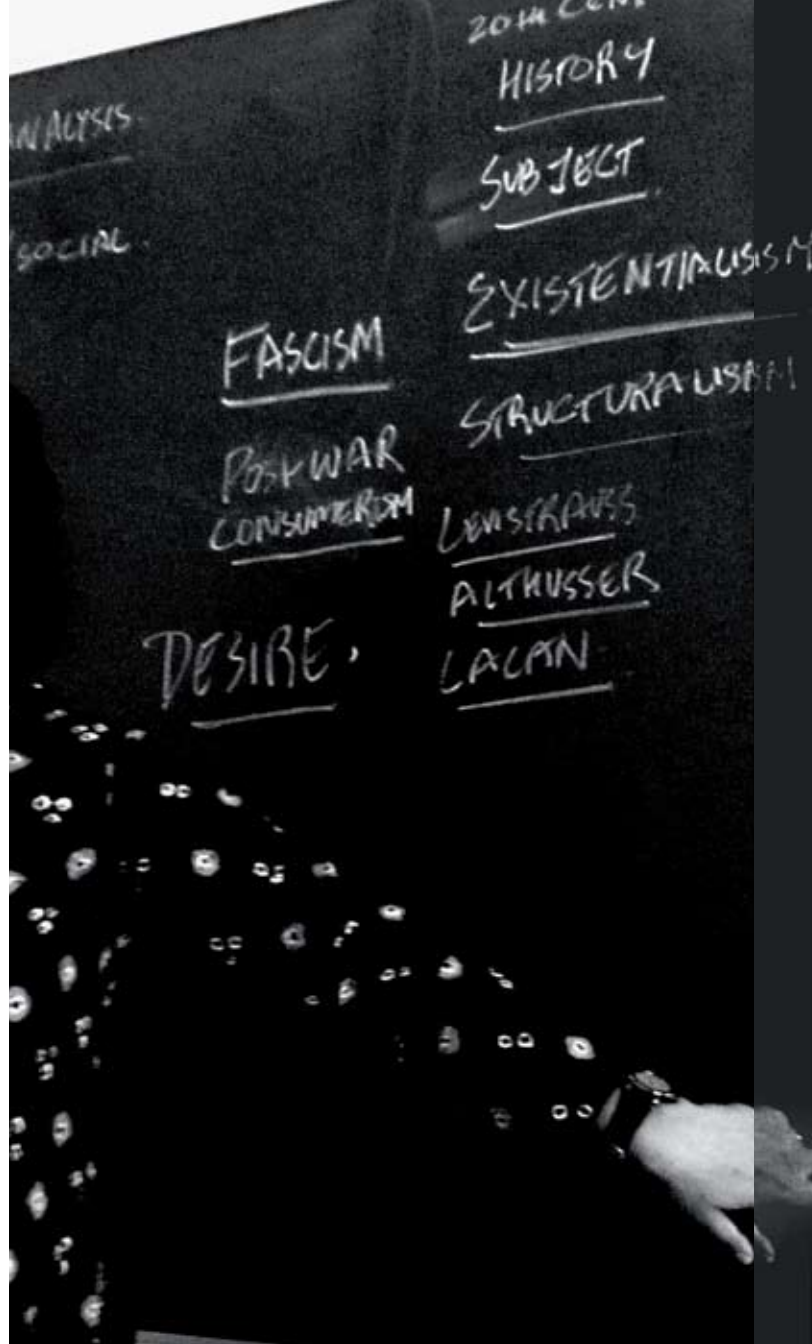 ANALYSIS.
SOCIAL.
FASCISM
POSTWAR
CONSUMERISM
DESIRE.
20TH CENT
HISTORY
SUBJECT.
EXISTENTIALISISM
STRUCTURALISM
LEVISTRAUSS
ALTHUSSER
LACAN